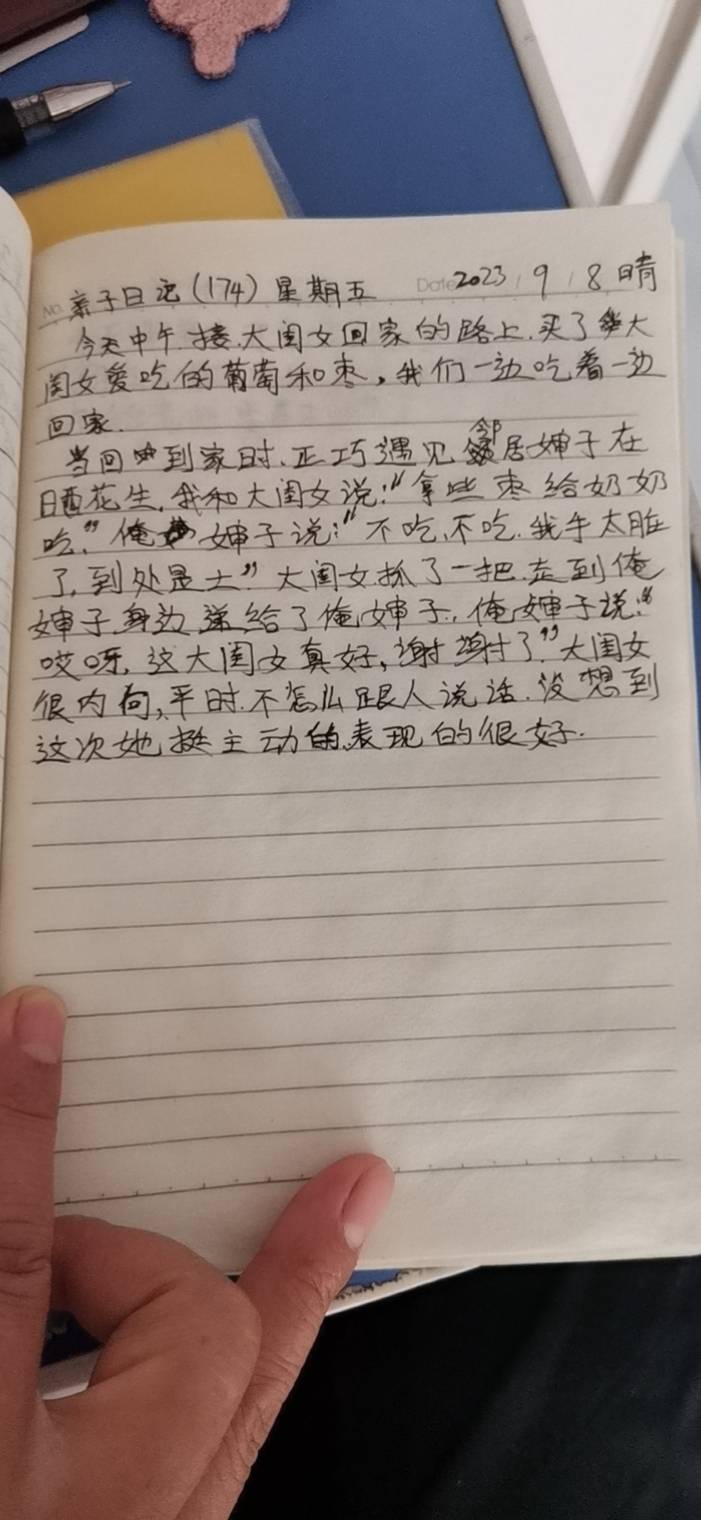 No. 亲子日记(174)星期五 Date 2023 / 9 / 8 晴
今天中午.接.大闺女回家的路上.买了大
闺女爱吃的葡萄和枣,我们一边吃着一边
回家.
当回到家时.正巧遇见邻居婶子在
晒花生.我和大闺女说:“拿些枣给奶奶
吃.”俺婶子说:“不吃,不吃.我手太脏
了,到处是土”大闺女.抓了一把.走到俺
婶子.身边递给了俺婶子.,俺婶子说:“
哎呀,这大闺女真好,谢谢了.”大闺女
很内向,平时.不怎么跟人说话.没想到
这次她挺主动的.表现的很好.